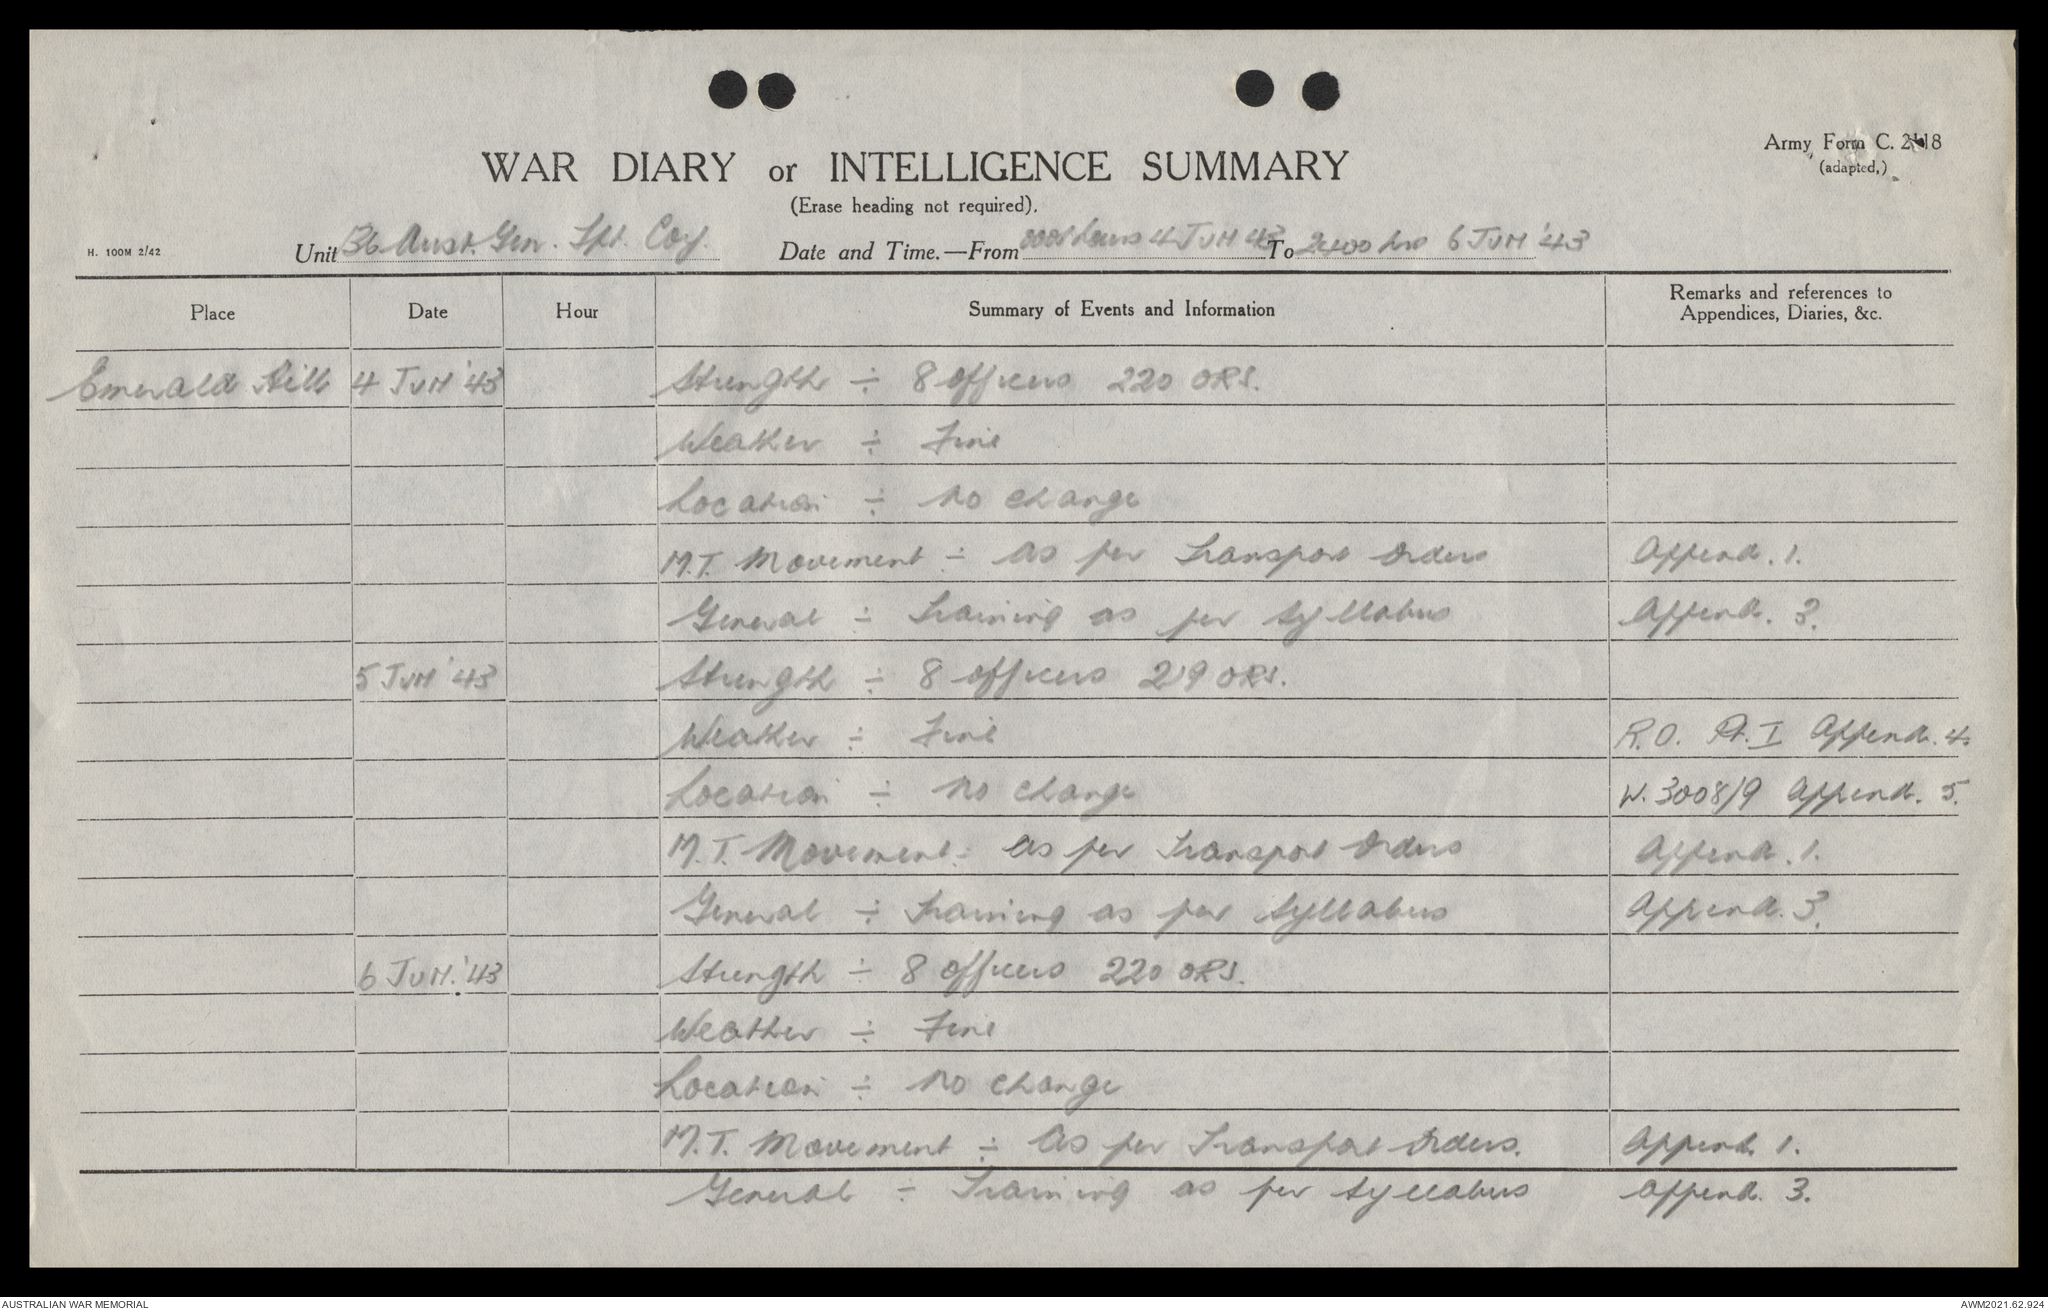 Army Form C. 2118
(adapted,)
WAR DIARY or INTELLIGENCE SUMMARY
(Erase heading not required).
H. 100M 2/42
Unit 136 Aust. Gen. Tpt. Coy. Date and Time.—From 0001 hours 4 JUN 43 To 2400 hrs 6 JUN '43
Place Date Hour Summary of Events and Information Remarks and references to
Appendices, Diaries, &c.
Emerald Hill 4 JUN '43 Strength ÷ 8 officers 220 ORS.
Weather ÷ Fine
Location ÷ No change
M.T. Movement ÷ As per Transport Orders Append. 1.
General ÷ Training as per Syllabus Append. 3.
5 JUN '43 Strength ÷ 8 officers 219 ORS.
Weather ÷ Fine R.O. Pt. I Append. 4.
Location ÷ No change W.3008/9 Append. 5.
M.T. Movement ÷ As per Transport Orders Append. 1.
General ÷ Training as per Syllabus Append. 3.
6 JUN. '43 Strength ÷ 8 officers 220 ORS.
Weather ÷ Fine
Location ÷ No change
M.T. Movement ÷ As per Transport Orders. Append. 1.
General ÷ Training as per Syllabus Append. 3.
AUSTRALIAN WAR MEMORIAL AWM2021.62.924